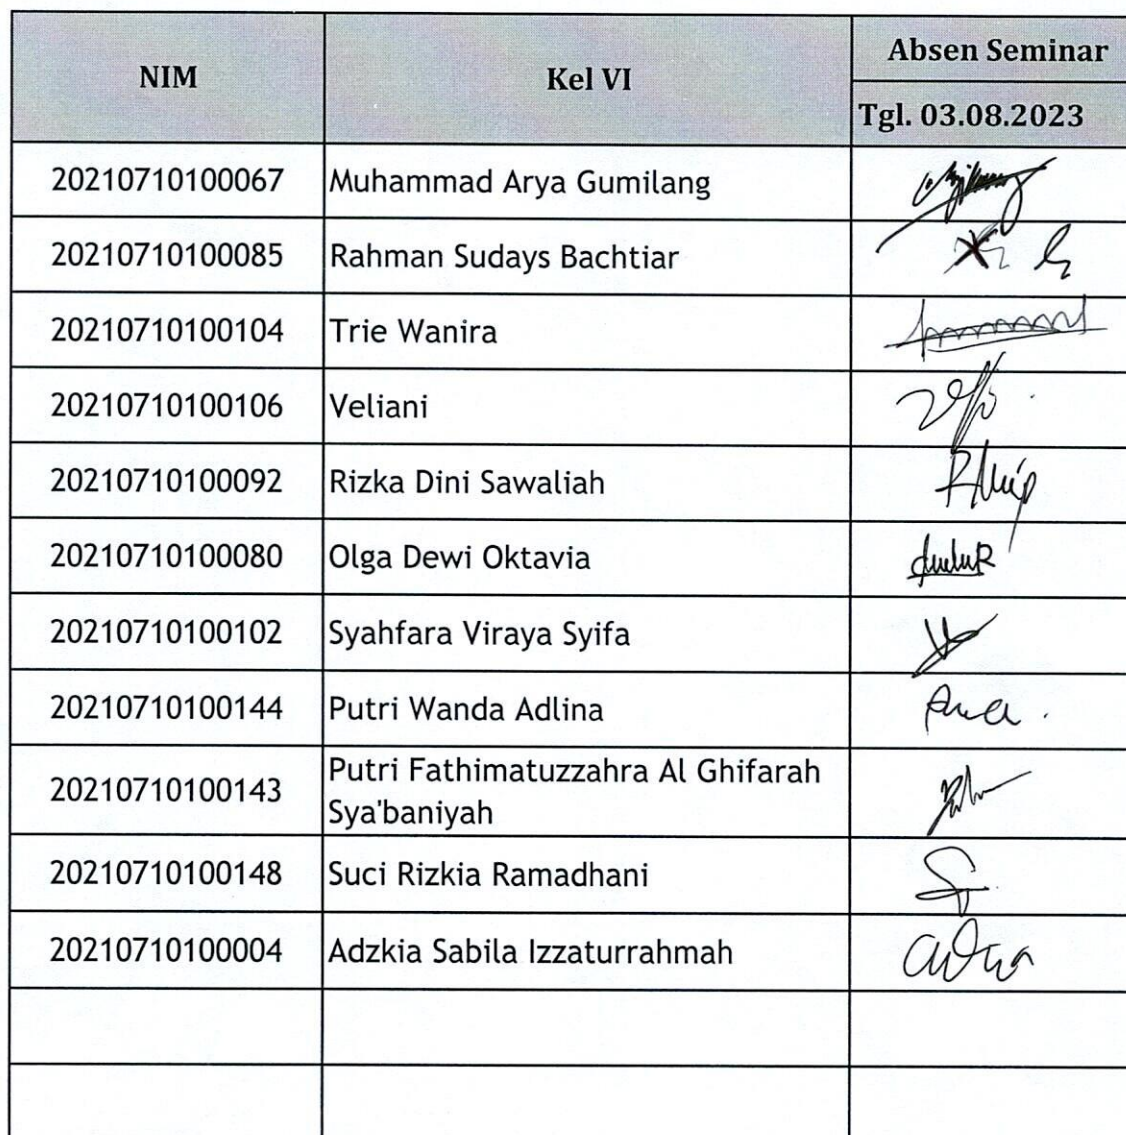 NIM
Kel VI
Absen Seminar
Tgl. 03.08.2023
20210710100067 Muhammad Arya Gumilang
20210710100085 Rahman Sudays Bachtiar
20210710100104 Trie Wanira
20210710100106 Veliani
20210710100092 Rizka Dini Sawaliah
20210710100080 Olga Dewi Oktavia
20210710100102 Syahfara Viraya Syifa
20210710100144 Putri Wanda Adlina
20210710100143 Putri Fathimatuzzahra Al Ghifarah
Sya'baniyah
20210710100148 Suci Rizkia Ramadhani
20210710100004 Adzkia Sabila Izzaturrahmah